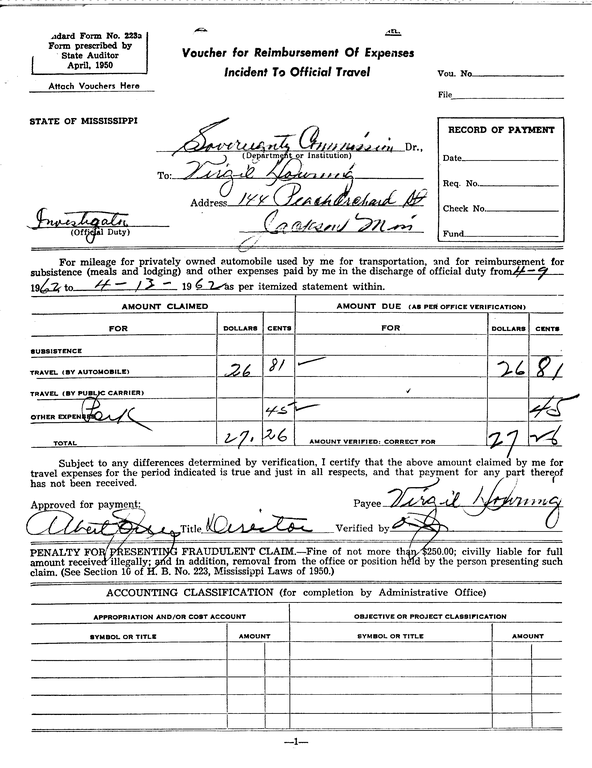 Standard Form No. 223a
Form prescribed by
State Auditor
April, 1950
Attach Vouchers Here
Voucher for Reimbursement Of Expenses
Incident To Official Travel
Vou. No.
File
STATE OF MISSISSIPPI
Sovereignty Commission Dr.,
(Department or Institution)
To: Virgil Downing
Address 144 Peach Orchard St
Jackson Miss
Investigator
(Official Duty)
RECORD OF PAYMENT
Date
Req. No.
Check No.
Fund
For mileage for privately owned automobile used by me for transportation, and for reimbursement for
subsistence (meals and lodging) and other expenses paid by me in the discharge of official duty from 4-9
1962 to 4-13-1962 as per itemized statement within.
AMOUNT CLAIMED AMOUNT DUE (AS PER OFFICE VERIFICATION)
FOR DOLLARS CENTS FOR DOLLARS CENTS
SUBSISTENCE
TRAVEL (BY AUTOMOBILE) 26 81 26 81
TRAVEL (BY PUBLIC CARRIER)
OTHER EXPENSES Park 45 45
TOTAL 27. 26 AMOUNT VERIFIED: CORRECT FOR 27 26
Subject to any differences determined by verification, I certify that the above amount claimed by me for
travel expenses for the period indicated is true and just in all respects, and that payment for any part thereof
has not been received.
Approved for payment: Payee Virgil Downing
Albert Jones Title Director Verified by
PENALTY FOR PRESENTING FRAUDULENT CLAIM.—Fine of not more than $250.00; civilly liable for full
amount received illegally; and in addition, removal from the office or position held by the person presenting such
claim. (See Section 10 of H. B. No. 223, Mississippi Laws of 1950.)
ACCOUNTING CLASSIFICATION (for completion by Administrative Office)
APPROPRIATION AND/OR COST ACCOUNT OBJECTIVE OR PROJECT CLASSIFICATION
SYMBOL OR TITLE AMOUNT SYMBOL OR TITLE AMOUNT
—1—